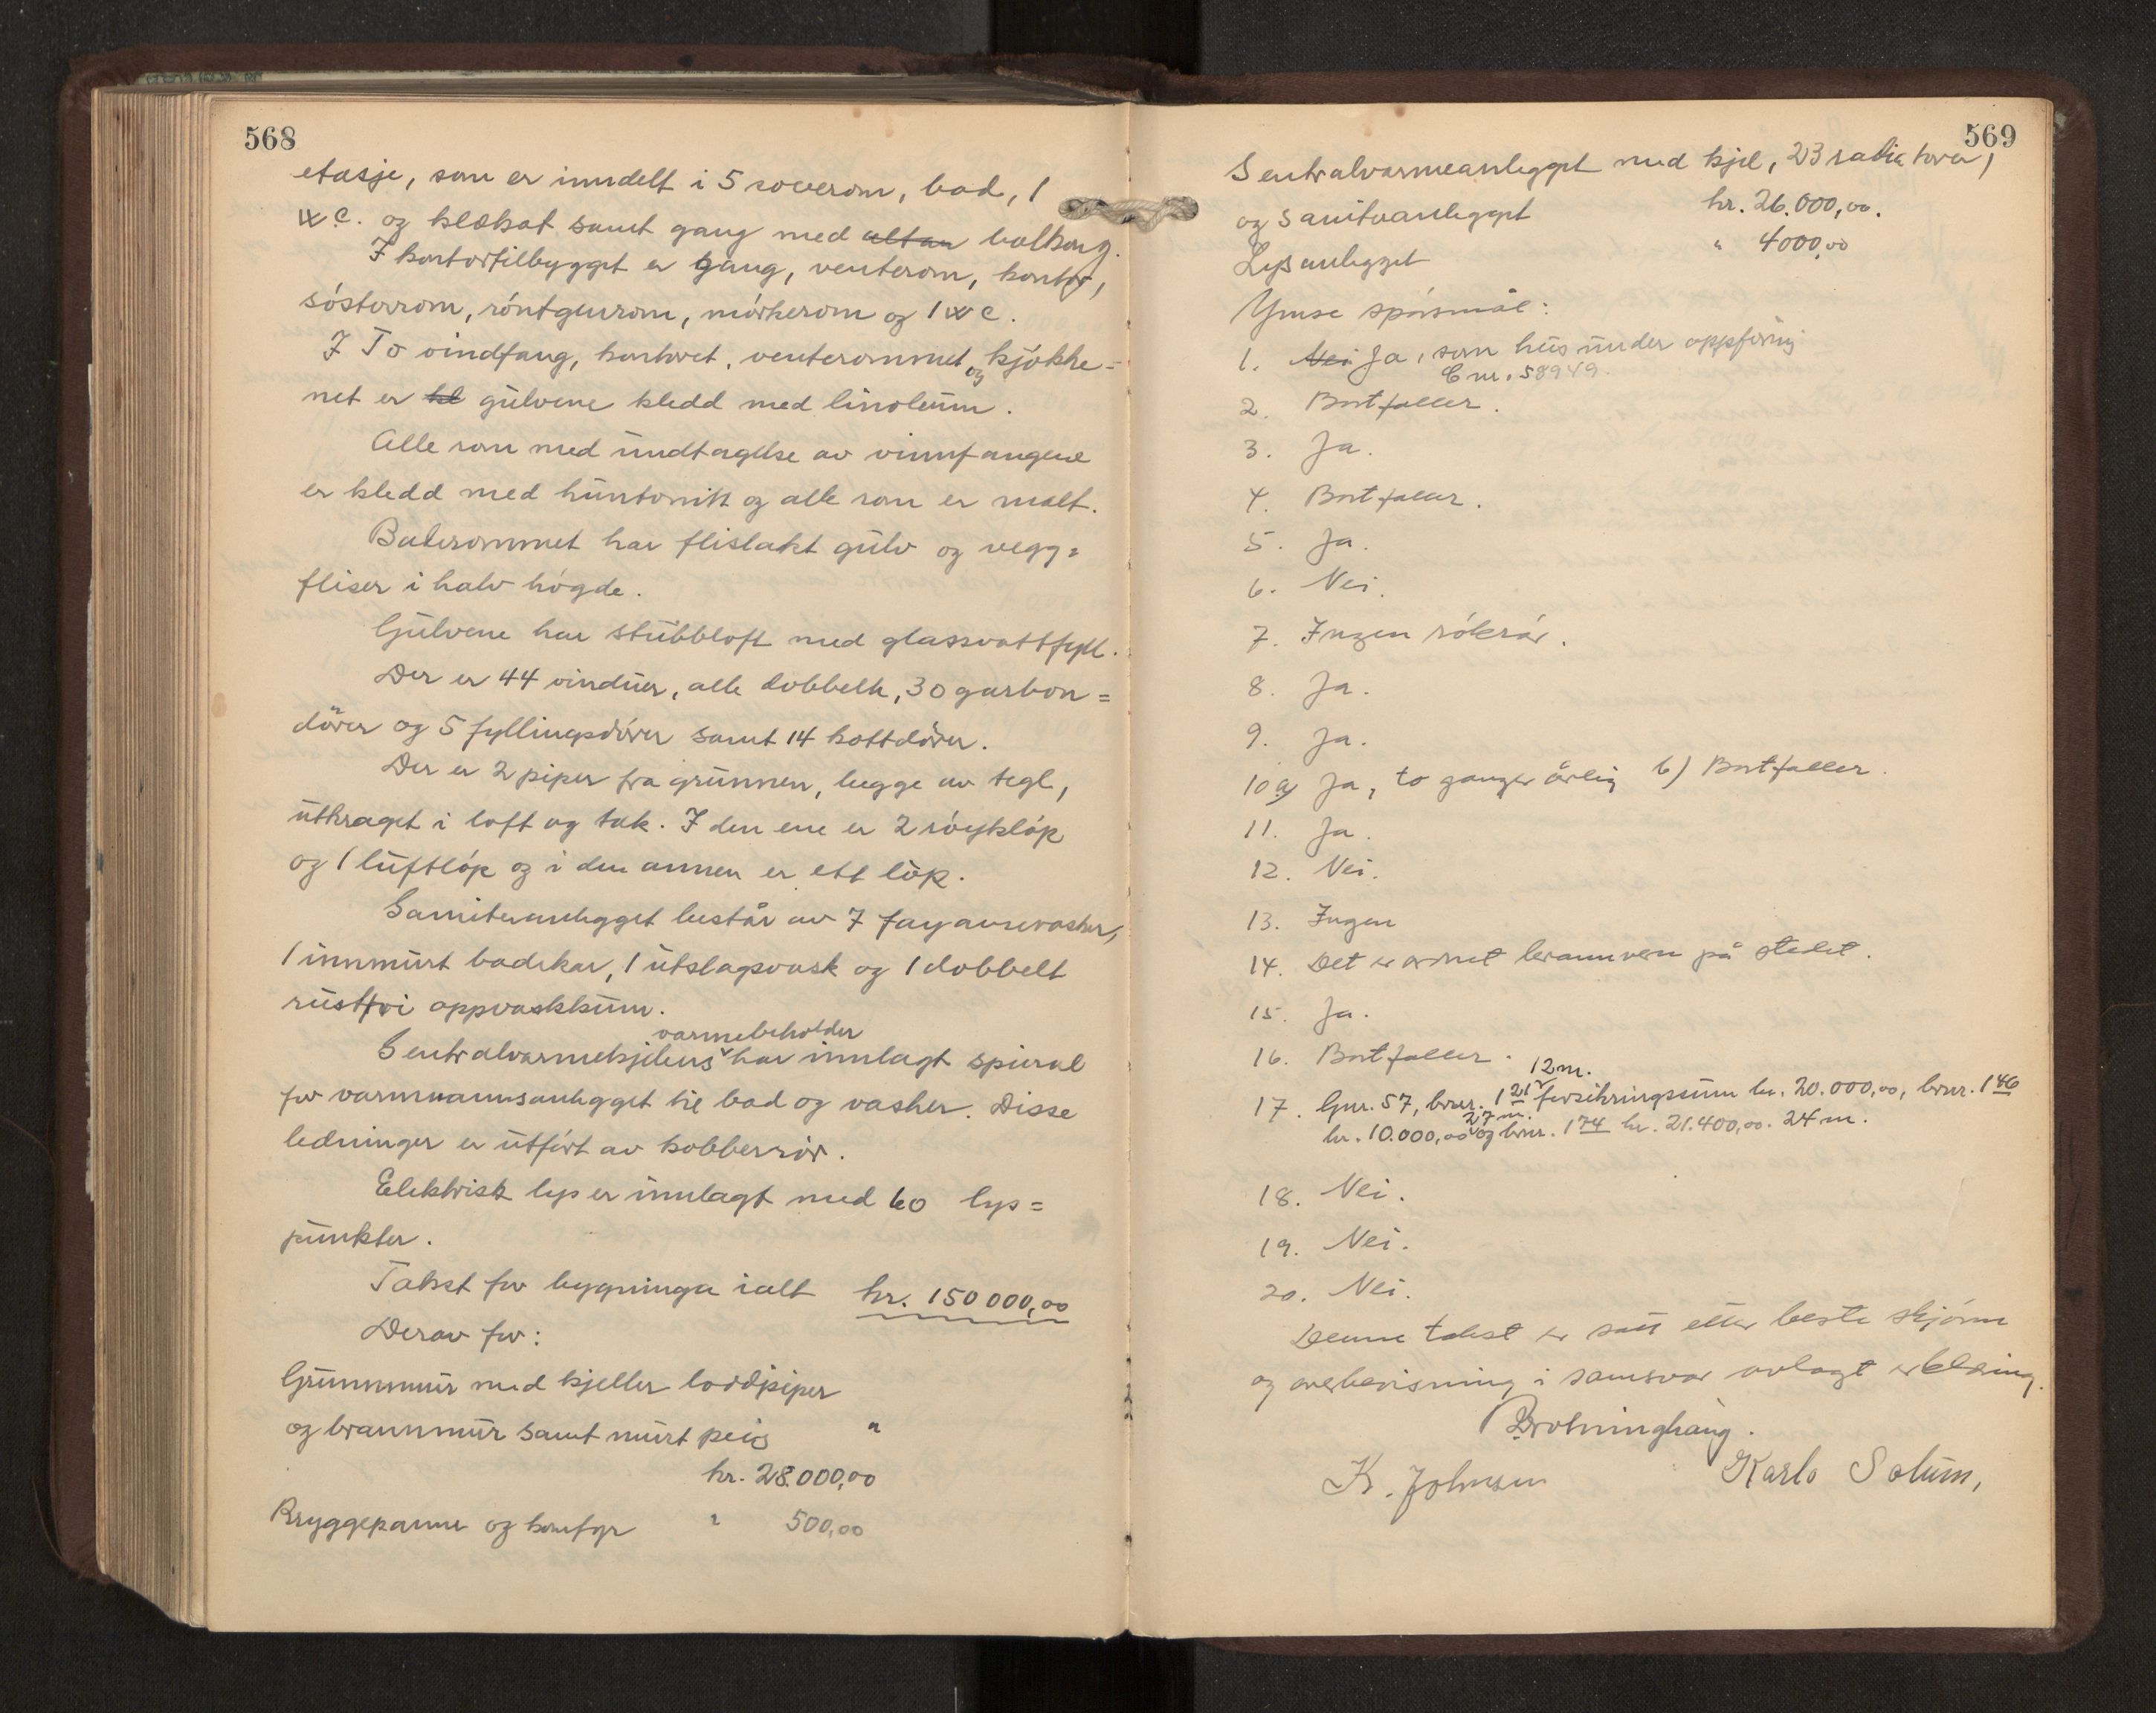 568
etasje, som er inndelt i 5 soverom, bad, 1
w c. og kleskot samt gang med altan balkong.
I kontortilbygget er gang, venterom, kontor,
søsterrom, røntgenrom, mørkerom og 1 w c.
I To vindfang, kontoret, venterommet og kjøkke=
net er kl gulvene kledd med linoleum.
Alle rom med undtagelse av vinnfangene
er kledd med huntonitt og alle rom er malt.
Baderommet har flislakt gulv og vegg=
fliser i halv høgde.
Gulvene har stubbloft med glassvattfyll.
Der er 44 vinduer, alle dobbelte, 30 gurbon=
dører og 5 fyllingsdører samt 14 kottdører.
Der er 2 piper fra grunnen, begge av tegl,
utkraget i loft og tak. I den ene er 2 røykløp
og 1 luftløp og i den annen er ett løp.
Saniteranlegget består av 7 fayansevasker,
1 innmurt badekar, 1 utslagsvask og 1 dobbelt
rustfri oppvaskkum.
varmebeholder
Sentralvarmekjelens har innlagt spiral
for varmvannsanlegget til bad og vasker. Disse
ledninger er utført av kobberrør.
Elektrisk lys er innlagt med 60 lys=
punkter.
Takst for bygninga ialt kr. 150 000,00
Derav for:
Grunnmur med kjeller lordpiper
og brannmur samt murt peis "
kr. 28.000,00
Bryggepanne og komfyr " 500,00
569
Sentralvarmeanlegget med kjel, 23 radiatorer,
og saniteranlegget kr. 26.000,00.
Lysanlegget " 4000,00
Ymse spørsmål:
1. Nei Ja, som hus under oppføring
C nr. 58949.
2. Bortfaller.
3. Ja.
4. Bortfaller.
5. Ja.
6. Nei.
7. Ingen røkrør.
8. Ja.
9. Ja.
10 a) Ja, to ganger årlig b) Bortfaller.
11. Ja.
12. Nei.
13. Ingen
14. Det er ordnet brannvern på stedet.
15. Ja.
16. Bortfaller.
12 m.
17. Gnr. 57, bnr. 121 forsikringssum kr. 20.000,00, bnr. 146
27 m.
kr. 10.000,00 og bnr. 174 kr. 21.400,00. 24 m.
18. Nei.
19. Nei.
20. Nei.
Denne takst er satt etter beste skjønn
og overbevisning i samsvar avlagt erklæring.
Drotninghaug.
K. Johnsen Karlo Solum,